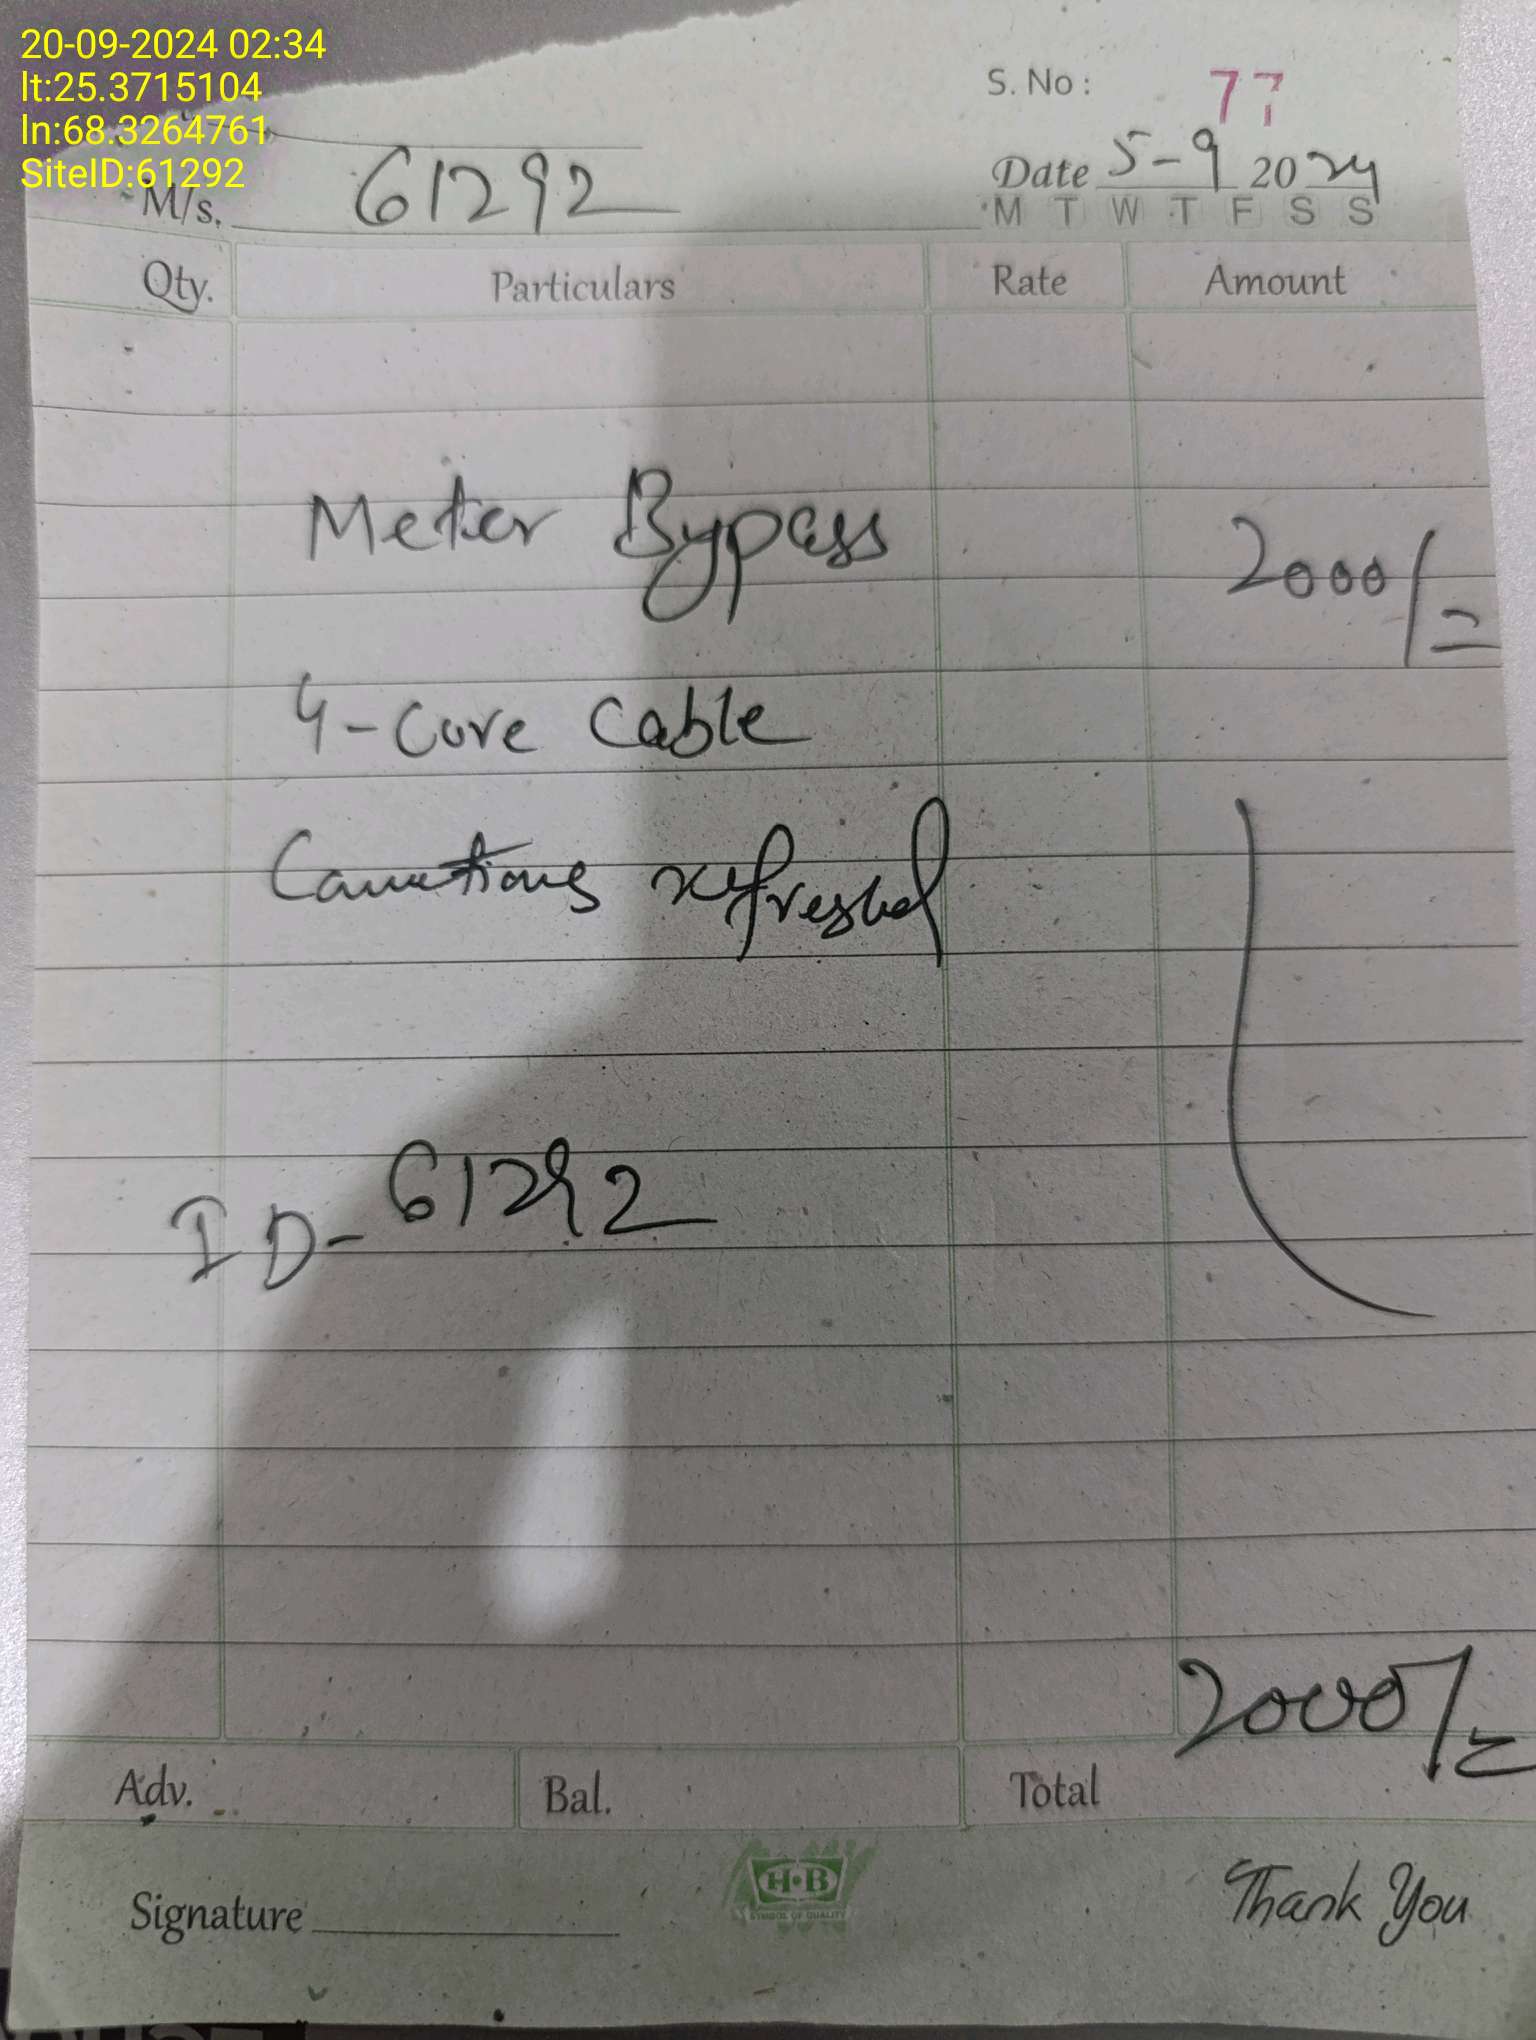 20-09-2024 02:34
lt:25.3715104
ln:68.3264761
SiteID:61292
S. No : 77
M/s. 61292
Date 5-9 2024
M T W T F S S
Qty. Particulars Rate Amount
Meter Bypass 2000/=
4-Core Cable
refreshed
ID-61292
2000/=
Adv. Bal. Total
H·B
SYMBOL OF QUALITY
Signature
Thank You